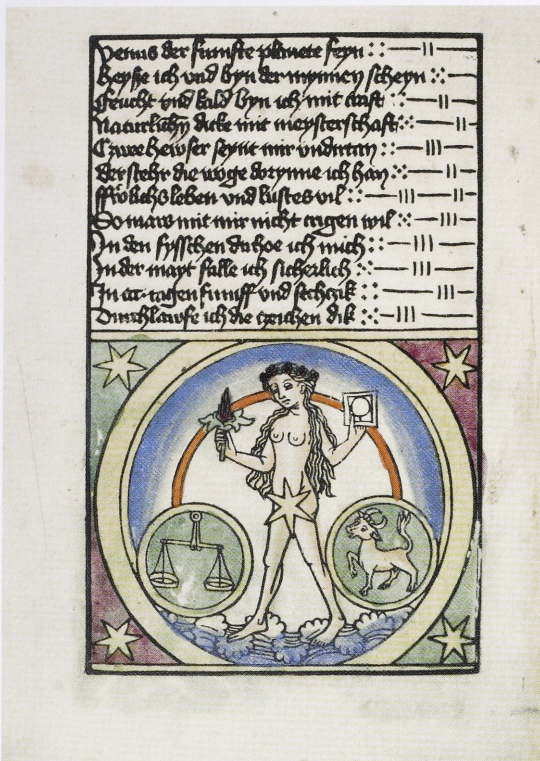 Venus der funfte planete feyn
Heysse ich vnd byn der mynney scheyn
Feucht vnd kald byn ich mit craft
Naturlichn dicke mit meysterschaft
Czwe hewser seynt mir vndirtan
Der stehr die woge dorynne ich han
ffrolichs leben vnd lustes vil
So mars mit mir nicht crigen wil
In den fysschen dirhoe ich mich
In der mayt falle ich sicherlich
In tagen funff vnd sechczik
Durchlawfe ich die czeichen dik